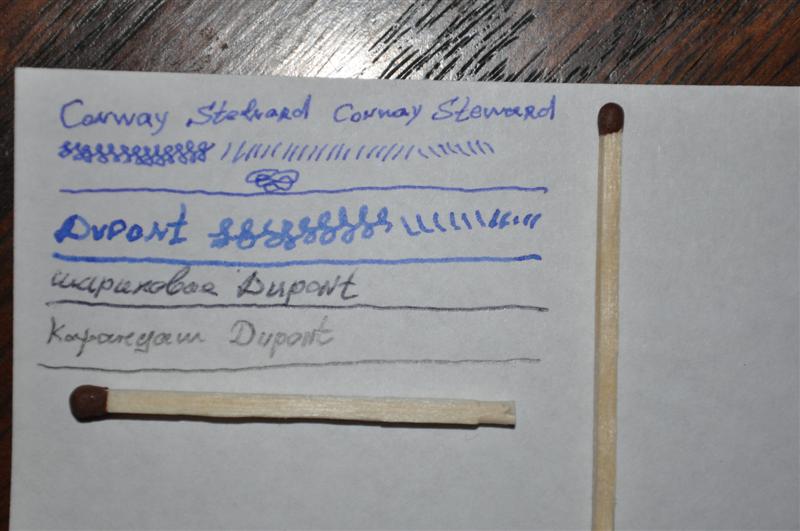 Conway Steward Conway Steward
Dupont
шариковая Dupont
Карандаш Dupont